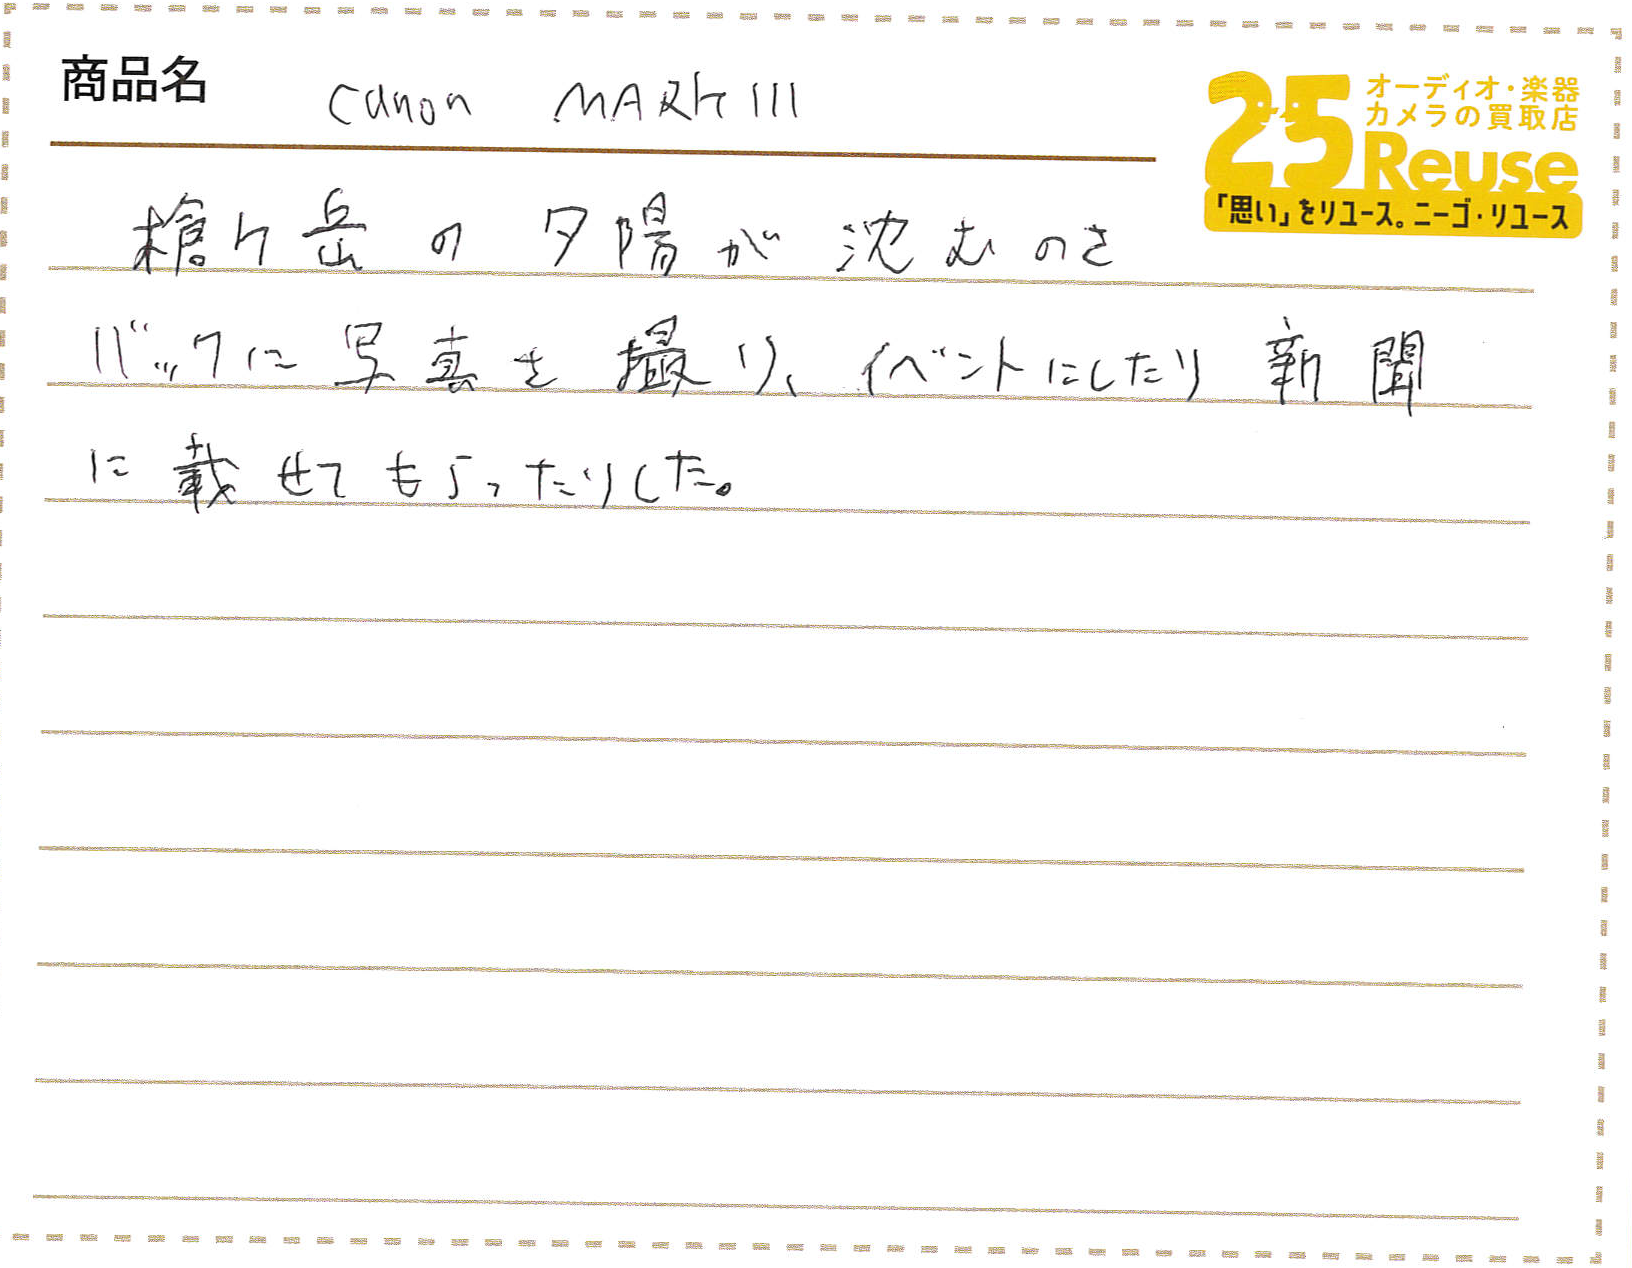 商品名 Canon MARK III
25 オーディオ・楽器
カメラの買取店
Reuse
「思い」をリユース。ニーゴ・リユース
槍ケ岳の夕陽が沈むのを
バックに写真を撮り、イベントにしたり新聞
に載せてもらったりした。